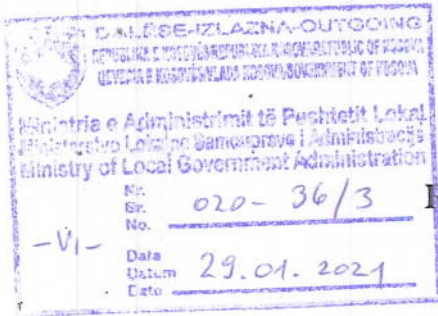 DALËSE-IZLAZNA-OUTGOING
REPUBLIKA E KOSOVËS/REPUBLIKA KOSOVA/REPUBLIC OF KOSOVA
QEVERIA E KOSOVËS/VLADA KOSOVA/GOVERNMENT OF KOSOVA
Ministria e Administrimit të Pushtetit Lokal
Ministarstvo Lokalne Samouprave i Administracije
Ministry of Local Government Administration
Nr.
Br.
No. 020-36/3
-VI-
Data
Datum
Date 29.01.2021